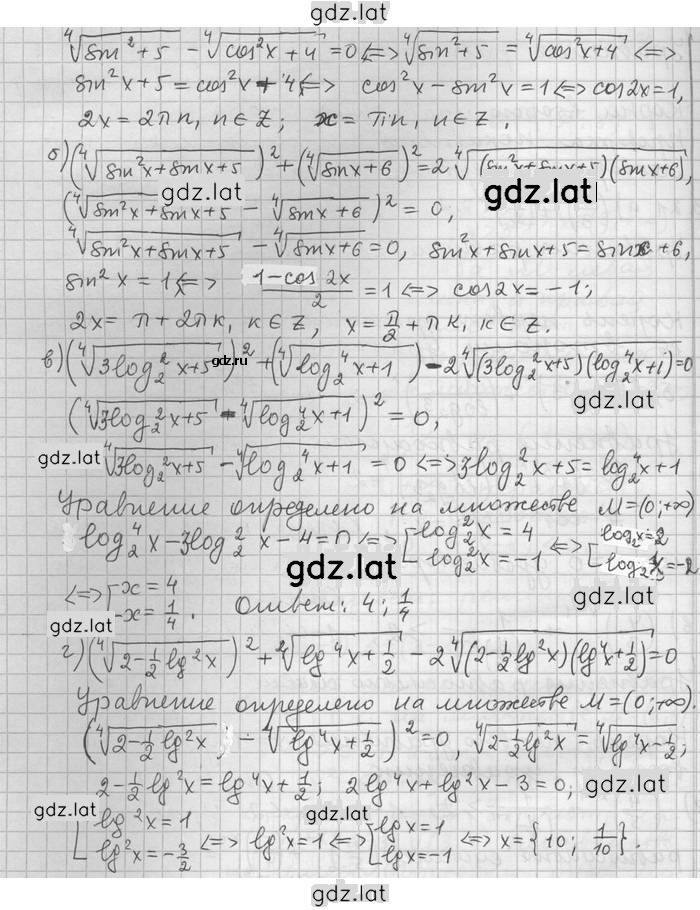 gdz.lat
⁴√(sin² + 5) - ⁴√(cos²x + 4) = 0 <=> ⁴√(sin² + 5) = ⁴√(cos²x + 4) <=>
sin²x + 5 = cos²x + 4 <=> cos²x - sin²x = 1 <=> cos2x = 1,
2x = 2πn, n ∈ Z; x = πn, n ∈ Z.
б) (⁴√(sin²x + sinx + 5))² + (⁴√(sinx + 6))² = 2 ⁴√((sin²x + sinx + 5)(sinx + 6)),
gdz.lat
gdz.lat
(⁴√(sin²x + sinx + 5) - ⁴√(sinx + 6))² = 0,
⁴√(sin²x + sinx + 5) - ⁴√(sinx + 6) = 0, sin²x + sinx + 5 = sinx + 6,
sin²x = 1 <=> (1 - cos 2x)/2 = 1 <=> cos2x = -1;
2x = π + 2πk, k ∈ Z, x = π/2 + πk, k ∈ Z.
gdz.ru
в) (⁴√(3log₂²x + 5))² + (⁴√(log₂⁴x + 1)) - 2 ⁴√((3log₂²x + 5)(log₂⁴x + 1)) = 0
gdz.lat
(⁴√(3log₂²x + 5) - ⁴√(log₂⁴x + 1))² = 0,
gdz.lat
⁴√(3log₂²x + 5) - ⁴√(log₂⁴x + 1) = 0 <=> 3log₂²x + 5 = log₂⁴x + 1
Уравнение определено на множестве M = (0; +∞)
log₂⁴x - 3log₂²x - 4 = 0 <=> [log₂²x = 4 log₂²x = -1 <=> [log₂x = 2 log₂x = -2
gdz.lat
<=> [x = 4 x = 1/4. Ответ: 4; 1/4
г) (⁴√(2 - ½lg²x))² + ²√(lg⁴x + ½) - 2 ⁴√((2 - ½lg²x)(lg⁴x + ½)) = 0
Уравнение определено на множестве M = (0; +∞).
(⁴√(2 - ½lg²x) - ⁴√(lg⁴x + ½))² = 0, ⁴√(2 - ½lg²x) = ⁴√(lg⁴x - ½);
2 - ½lg²x = lg⁴x + ½; 2lg⁴x + lg²x - 3 = 0;
gdz.lat
gdz.lat
[lg²x = 1 lg²x = -3/2 <=> lg²x = 1 <=> [lgx = 1 lgx = -1 <=> x = {10; 1/10}.
gdz.lat